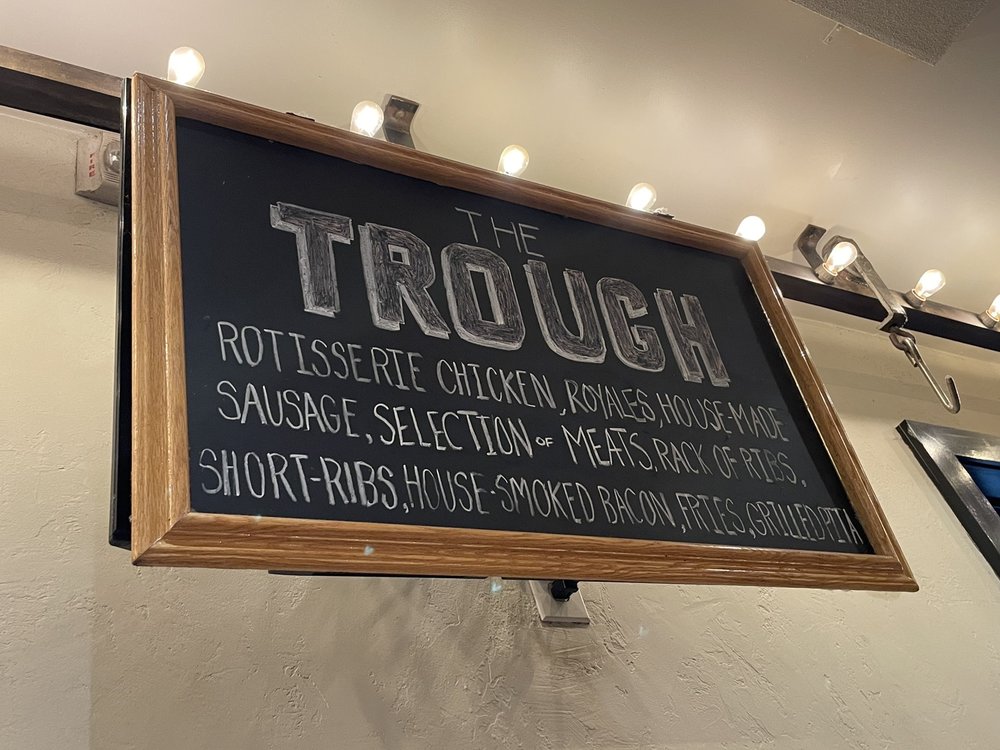 THE
TROUGH
ROTISSERIE CHICKEN, ROYALES, HOUSE-MADE
SAUSAGE, SELECTION OF MEATS, RACK OF RIBS,
SHORT-RIBS, HOUSE-SMOKED BACON, FRIES, GRILLED PITA
FIRE